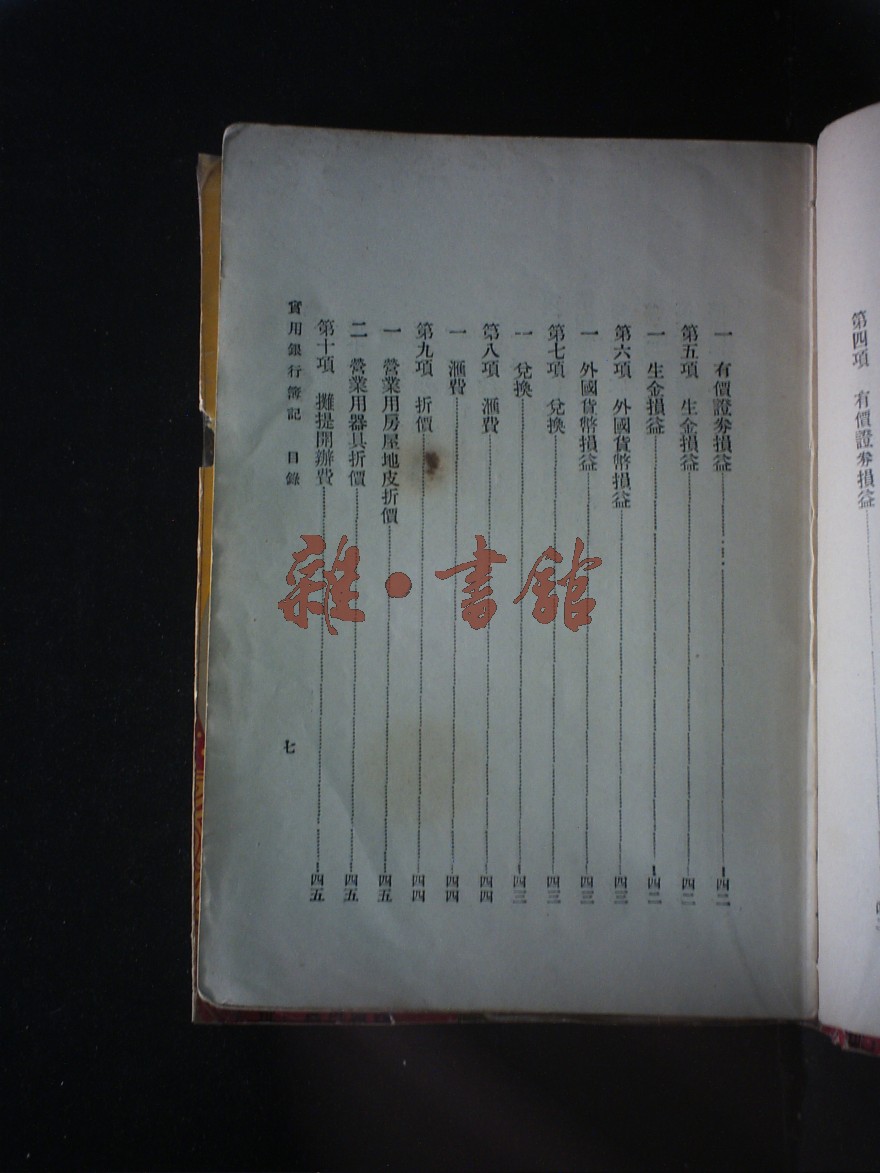 第四項　有價證券損益
一　有價證券損益 四二
第五項　生金損益 四二
一　生金損益 四二
第六項　外國貨幣損益 四三
一　外國貨幣損益 四三
第七項　兌換 四三
一　兌換 四三
第八項　滙費 四四
一　滙費 四四
第九項　折價 四四
一　營業用房屋地皮折價 四五
二　營業用器具折價 四五
第十項　攤提開辦費 四五
實用銀行簿記　目錄
七
雜·書館